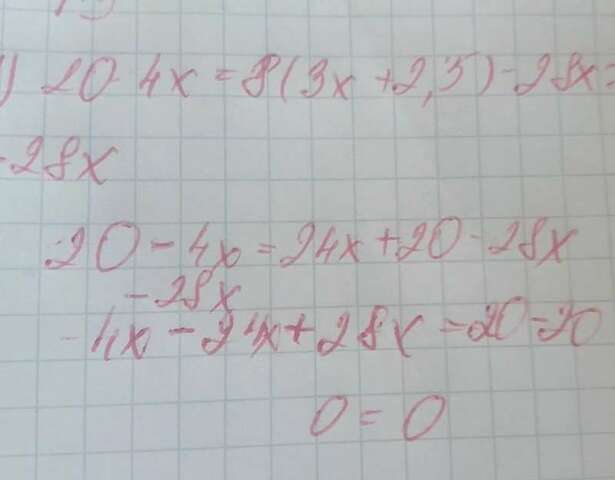 1) 20-4x=8(3x+2,5)-28x=
-28x
20-4x=24x+20-28x
-28x
-4x-24x+28x=20-20
0=0